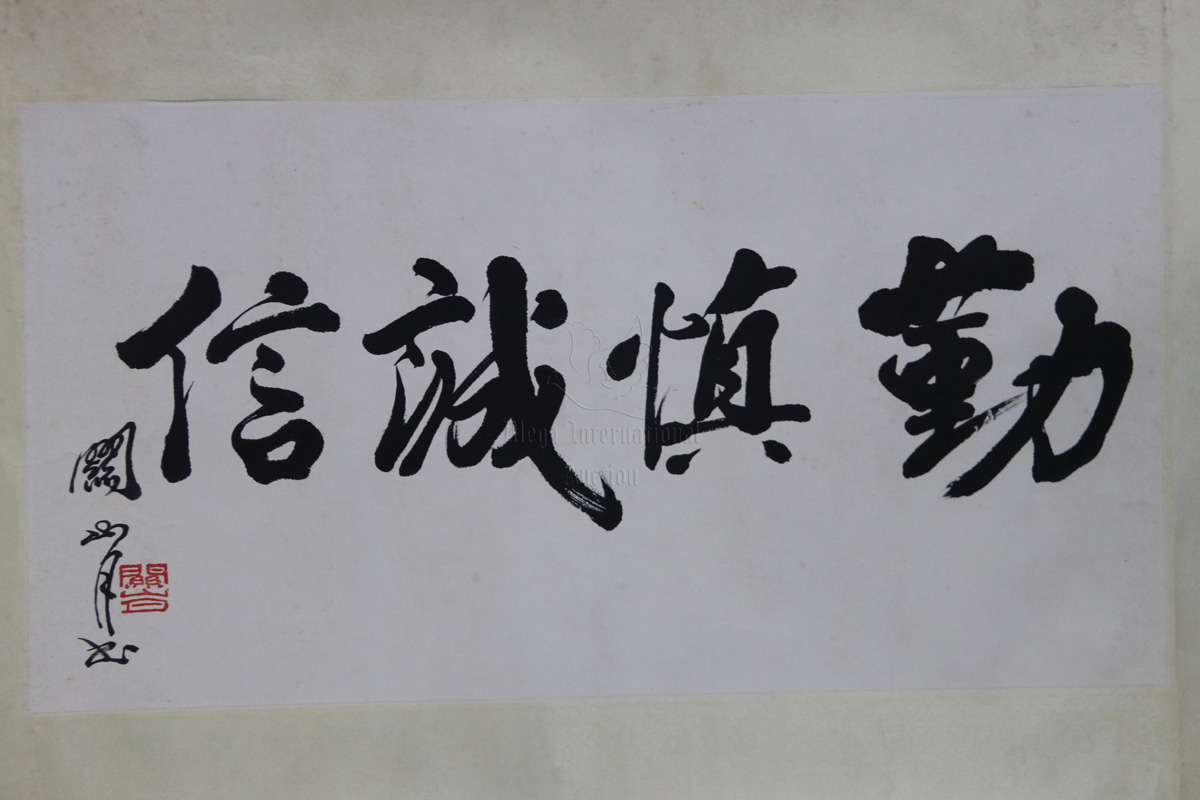 勤慎誠信
關山月书
Mega International
Auction